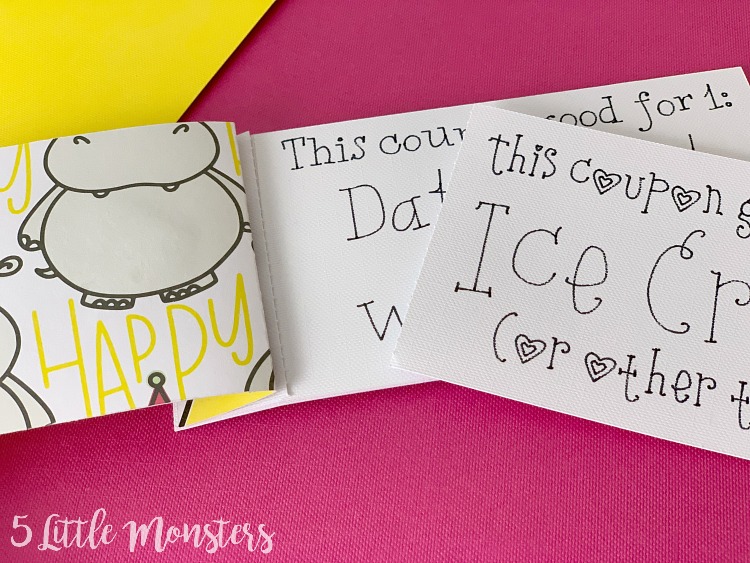 HAPPY
This cou
ood for 1:
Dat
W
this coupon g
Ice Cr
(or other t
5 Little Monsters